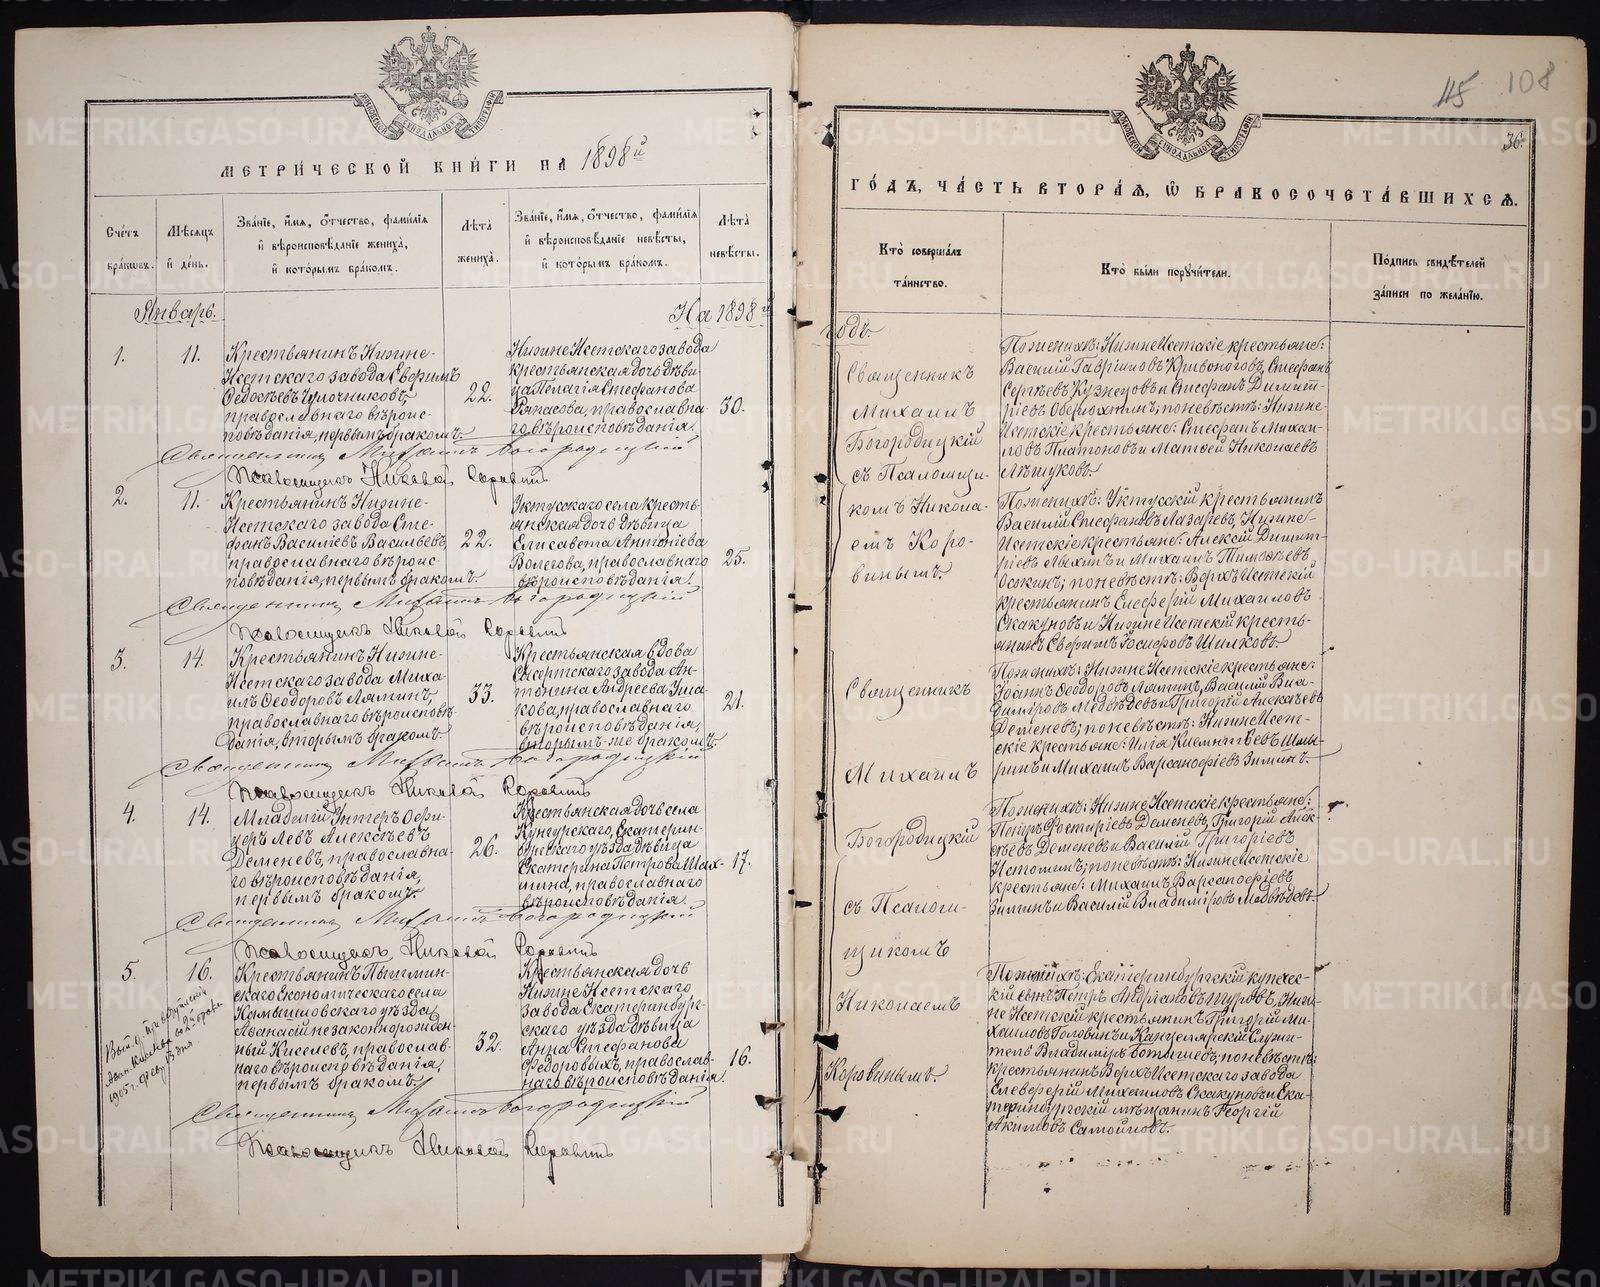 45
108
36.
МЕТРИ́ЧЕСКОЙ КНИ́ГИ НА 1898й
Сче́тъ бра́ковъ.
Мѣ́сяцъ и҆ де́нь.
Зва́нїе, и҆́мѧ, ѻ҆́тчество, фами́лїѧ и҆ вѣроисповѣ́данїе жениха̀, и҆ кото́рымъ бра́комъ.
Лѣ́та жениха̀.
Зва́нїе, и҆́мѧ, ѻ҆́тчество, фами́лїѧ и҆ вѣроисповѣ́данїе невѣ́сты, и҆ кото́рымъ бра́комъ.
Лѣ́та невѣ́сты.
Январь.
На 1898й
1.
11.
Крестьянинъ Нижне-
Исетскаго завода Евфимъ
Ѳедосѣевъ
православнаго вѣроис-
повѣданія, первымъ бракомъ.
22.
Нижне Исетскаго завода
крестьянская дочь дѣви-
ца Пелагія Стефанова
православна-
го вѣроисповѣданія.
30.
Священникъ Михаилъ Богородицкій
Псаломщикъ Николай Коровинъ
2.
11.
Крестьянинъ Нижне-
Исетскаго завода Сте-
фанъ Василіевъ Васильевъ,
православнаго вѣроис-
повѣданія, первымъ бракомъ.
22.
Уктусскаго села кресть-
янская дочь дѣвица
Елисавета Антоніева
Волегова, православнаго
вѣроисповѣданія.
25.
Священникъ Михаилъ Богородицкій
Псаломщикъ Николай Коровинъ
3.
14.
Крестьянинъ Нижне-
Исетскаго завода Миха-
илъ Ѳеодоровъ Ляминъ,
православнаго вѣроисповѣ-
данія, вторымъ бракомъ.
33.
Крестьянская вдова
Сысертскаго завода Ан-
тонина Андреева Уша-
кова, православнаго
вѣроисповѣданія,
вторымъ-же бракомъ.
21.
Священникъ Михаилъ Богородицкій
Псаломщикъ Николай Коровинъ
4.
14.
Младшій Унтеръ Офи-
церъ Левъ Алексѣевъ
Деменевъ, православна-
го вѣроисповѣданія,
первымъ бракомъ.
26.
Крестьянская дочь села
Кунгурскаго, Екатерин-
бургскаго уѣзда дѣвица
Екатерина Петрова
православнаго
вѣроисповѣданія.
17.
Священникъ Михаилъ Богородицкій
Псаломщикъ Николай Коровинъ
5.
16.
Крестьянинъ Пышмин-
скаго Економическаго села
Камышловскаго уѣзда
Аѳанасій незаконнорожден-
ный Киселевъ, православ-
наго вѣроисповѣданія,
первымъ бракомъ.
32.
Крестьянская дочь
Нижне Исетскаго
завода Екатеринбург-
скаго уѣзда дѣвица
Анна Стефанова
Ѳедоровыхъ, православ-
наго вѣроисповѣданія.
16.
Священникъ Михаилъ Богородицкій
Псаломщикъ Николай Коровинъ
ГО́ДЪ, ЧА́СТЬ ВТОРА́Ѧ, Ѽ БРАКОСОЧЕТА́ВШИХСѦ.
Кто̀ соверша́лъ та́инство.
Кто̀ бы́ли порꙋчи́тели.
По́дпись свидѣ́телей за́писи по жела́нїю.
годъ.
Священникъ
Михаилъ
Богородицкій
съ Псаломщи-
комъ Никола-
емъ Коро-
винымъ.
По женихѣ: Нижне Исетскіе крестьяне:
Василій Гавріиловъ Кривоноговъ, Стефанъ
Сергѣевъ Кузнецовъ и Стефанъ Димит-
ріевъ по невѣстѣ: Нижне-
Исетскіе крестьяне: Стефанъ Михаи-
ловъ Платоновъ и Матѳей Николаевъ
По женихѣ: Уктусскій крестьянинъ
Василій Стефановъ Лазаревъ, Нижне-
Исетскіе крестьяне: Алексій Димит-
ріевъ и Михаилъ
по невѣстѣ: Верхъ Исетскій
крестьянинъ Елеѳерій Михаиловъ
Скакуновъ и Нижне Исетскій кресть-
янинъ Евфимъ Іосифовъ
Священникъ
Михаилъ
Богородицкій
съ Псалом-
щикомъ
Николаемъ
Коровинымъ.
По женихѣ: Нижне Исетскіе крестьяне:
Іоаннъ Ѳеодоровъ Ляминъ, Василій Вла-
диміровъ Медвѣдевъ и Григорій Алексѣевъ
Деменевъ; по невѣстѣ: Нижне Исет-
скіе крестьяне: Илія
и Михаилъ Варсанофіевъ Зиминъ.
По женихѣ: Нижне Исетскіе крестьяне:
Петръ Деменевъ, Григорій Алек-
сѣевъ Деменевъ и Василій Григоріевъ
Истоминъ; по невѣстѣ: Нижне Исетскіе
крестьяне: Михаилъ Варсанофіевъ
Зиминъ и Василій Владиміровъ Медвѣдевъ.
По женихѣ: Екатеринбургскій купечес-
кій сынъ Петръ Андріановъ Шуровъ, Ниж-
не Исетскій крестьянинъ Григорій Ми-
хаиловъ Головинъ и Канцелярскій Служи-
тель Владиміръ по невѣстѣ:
крестьянинъ Верхъ Исетскаго завода
Елевферій Михаиловъ Скакуновъ и Ека-
теринбургскій мѣщанинъ Георгій
Акимовъ Самойловъ.
METRIKI.GASO-URAL.RU